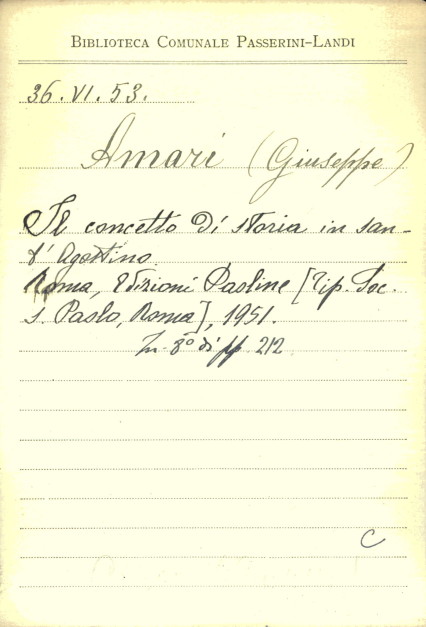 BIBLIOTECA COMUNALE PASSERINI-LANDI
36.VI.53.
Amari (Giuseppe)
Il concetto di storia in san-
t' Agostino.
Roma, Edizioni Paoline [Tip. Soc.
S. Paolo, Roma], 1951.
In-8° di pp. 212
C